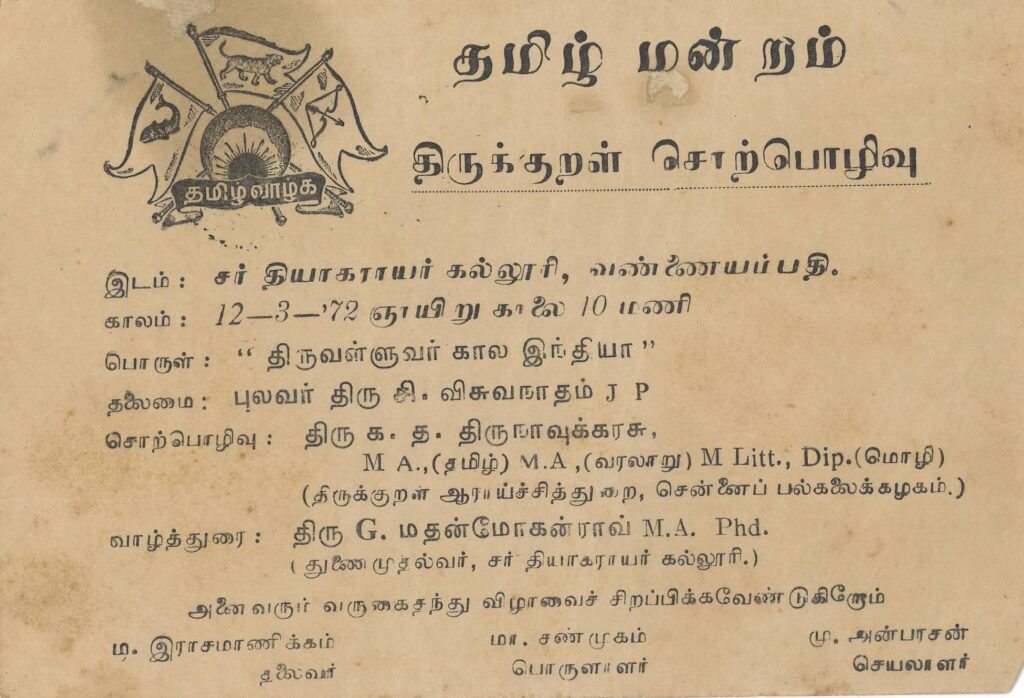 தமிழ் மன்றம்
தமிழ்வாழக
திருக்குறள் சொற்பொழிவு
இடம் : சர் தியாகராயர் கல்லூரி, வண்ணையம்பதி.
காலம் : 12—3—'72 ஞாயிறு காலை 10 மணி
பொருள் : “ திருவள்ளுவர் கால இந்தியா ”
தலைமை : புலவர் திரு சி. விசுவநாதம் J P
சொற்பொழிவு : திரு க. த. திருநாவுக்கரசு,
M A.,(தமிழ்) M.A ,(வரலாறு) M Litt., Dip.(மொழி)
(திருக்குறள் ஆராய்ச்சித்துறை, சென்னைப் பல்கலைக்கழகம்.)
வாழ்த்துரை : திரு G. மதன்மோகன்ராவ் M.A. Phd.
( துணைமுதல்வர், சர் தியாகராயர் கல்லூரி.)
அனைவரும் வருகைதந்து விழாவைச் சிறப்பிக்கவேண்டுகிறோம்
ம. இராசமாணிக்கம் மா. சண்முகம் மு. அன்பரசன்
தலைவர் பொருளாளர் செயலாளர்